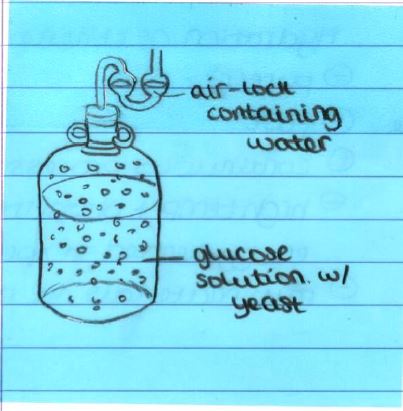 air-lock
containing
water
glucose
solution. w/
yeast